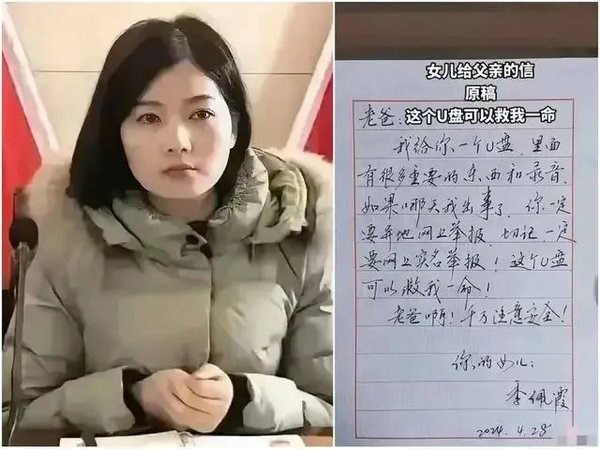 女儿给父亲的信
原稿
这个U盘可以救我一命
老爸:
我给你一个U盘,里面
有很多重要的东西和录音,
如果哪天我出事了,你一定
要异地网上举报,切记一定
要网上实名举报!这个U盘
可以救我一命!
老爸啊!千万注意安全!
你的女儿:
李佩霞
2024.4.28